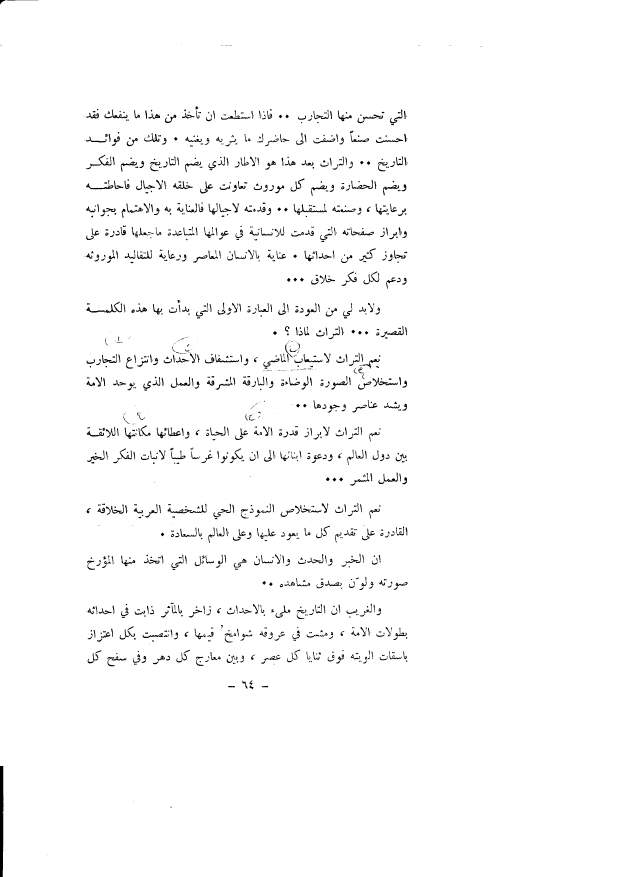 التي تحسن منها التجارب ٠٠ فاذا استطعت ان تأخذ من هذا ما ينفعك فقد
احسنت صنعاً واضفت الى حاضرك ما يثريه ويغنيه ٠ وتلك من فوائــد
التاريخ ٠٠ والتراث بعد هذا هو الاطار الذي يضم التاريخ ويضم الفكـر
ويضم الحضارة ويضم كل موروث تعاونت على خلقه الاجيال فاحاطتــه
برعايتها ، وصنعته لمستقبلها ٠٠ وقدمته لاجيالها فالعناية به والاهتمام بجوانبه
وابراز صفحاته التي قدمت للانسانية في عوالمها المتباعدة ماجعلها قادرة على
تجاوز كثير من احداثها ٠ عناية بالانسان المعاصر ورعاية للتقاليد الموروثه
ودعم لكل فكر خلاق ٠٠٠
ولابد لي من العودة الى العبارة الاولى التي بدأت بها هذه الكلمــة
القصيرة ٠٠٠ التراث لماذا ؟ ٠
نعم التراث لاستيعاب الماضي ، واستشفاف الأحداث وانتزاع التجارب
واستخلاص الصورة الوضاءة والبارقة المشرقة والعمل الذي يوحد الامة
ويشد عناصر وجودها ٠٠
نعم التراث لابراز قدرة الامة على الحياة ، واعطائها مكانتها اللائقـة
بين دول العالم ، ودعوة ابنائها الى ان يكونوا غرساً طيباً لانبات الفكر الخير
والعمل المثمر ٠٠٠
نعم التراث لاستخلاص النموذج الحي للشخصية العربية الخلاقة ،
القادرة على تقديم كل ما يعود عليها وعلى العالم بالسعادة ٠
ان الخبر والحدث والانسان هي الوسائل التي اتخذ منها المؤرخ
صورته ولوّن بصدق مشاهده ٠٠
والغريب ان التاريخ مليء بالاحداث ، زاخر بالمآثر ذابت في احداثه
بطولات الامة ، ومشت في عروقه شوامخ قيمها ، وانتصبت بكل اعتزاز
باسقات الويته فوق ثنايا كل عصر ، وبين معارج كل دهر وفي سفح كل
– ٦٤ –